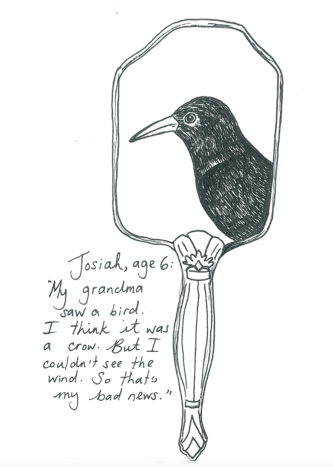 Josiah, age 6:
"My grandma
saw a bird.
I think it was
a crow. But I
couldn't see the
wind. So thats
my bad news."